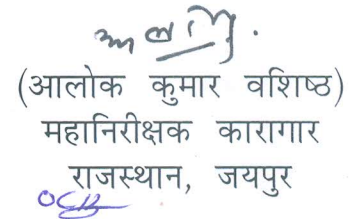 (आलोक कुमार वशिष्ठ)
महानिरीक्षक कारागार
राजस्थान, जयपुर